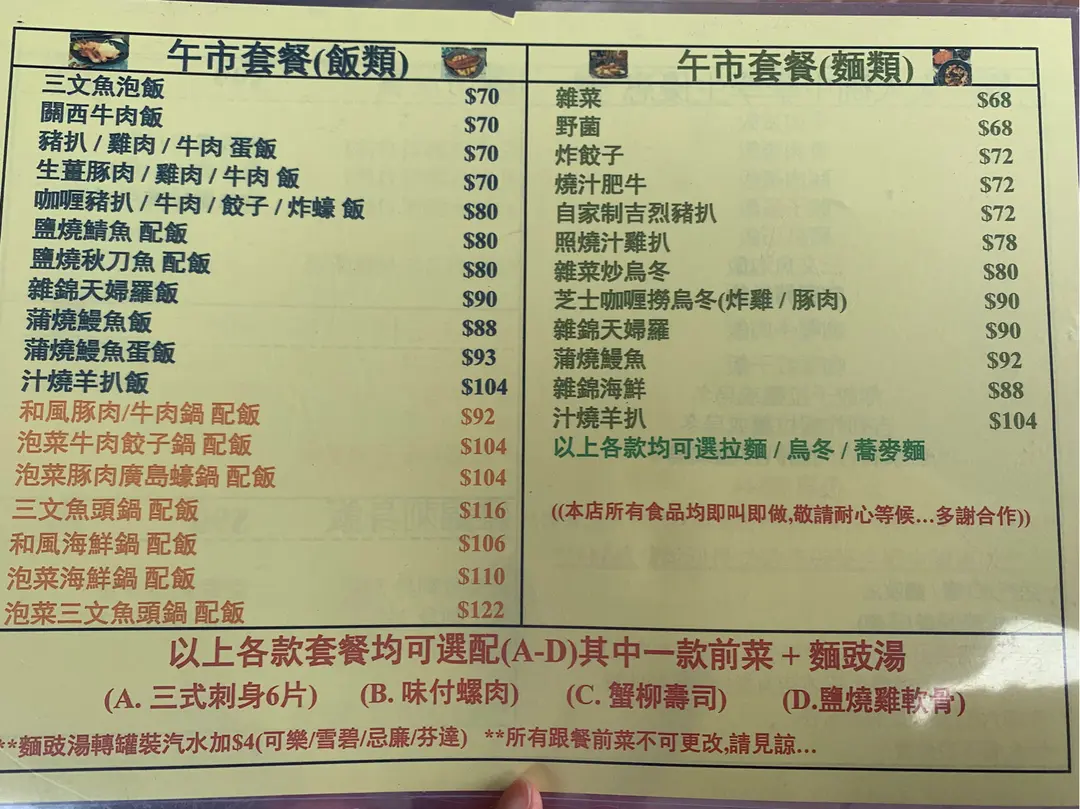 午市套餐(飯類)
三文魚泡飯 $70
關西牛肉飯 $70
豬扒 / 雞肉 / 牛肉 蛋飯 $70
生薑豚肉 / 雞肉 / 牛肉 飯 $70
咖喱豬扒 / 牛肉 / 餃子 / 炸蠔 飯 $80
鹽燒鯖魚 配飯 $80
鹽燒秋刀魚 配飯 $80
雜錦天婦羅飯 $90
蒲燒鰻魚飯 $88
蒲燒鰻魚蛋飯 $93
汁燒羊扒飯 $104
和風豚肉/牛肉鍋 配飯 $92
泡菜牛肉餃子鍋 配飯 $104
泡菜豚肉廣島蠔鍋 配飯 $104
三文魚頭鍋 配飯 $116
和風海鮮鍋 配飯 $106
泡菜海鮮鍋 配飯 $110
泡菜三文魚頭鍋 配飯 $122
午市套餐(麵類)
雜菜 $68
野菌 $68
炸餃子 $72
燒汁肥牛 $72
自家制吉烈豬扒 $72
照燒汁雞扒 $78
雜菜炒烏冬 $80
芝士咖喱撈烏冬(炸雞 / 豚肉) $90
雜錦天婦羅 $90
蒲燒鰻魚 $92
雜錦海鮮 $88
汁燒羊扒 $104
以上各款均可選拉麵 / 烏冬 / 蕎麥麵
((本店所有食品均即叫即做,敬請耐心等候…多謝合作))
以上各款套餐均可選配(A-D)其中一款前菜 + 麵豉湯
(A. 三式刺身6片) (B. 味付螺肉) (C. 蟹柳壽司) (D.鹽燒雞軟骨)
**麵豉湯轉罐裝汽水加$4(可樂/雪碧/忌廉/芬達) **所有跟餐前菜不可更改,請見諒…